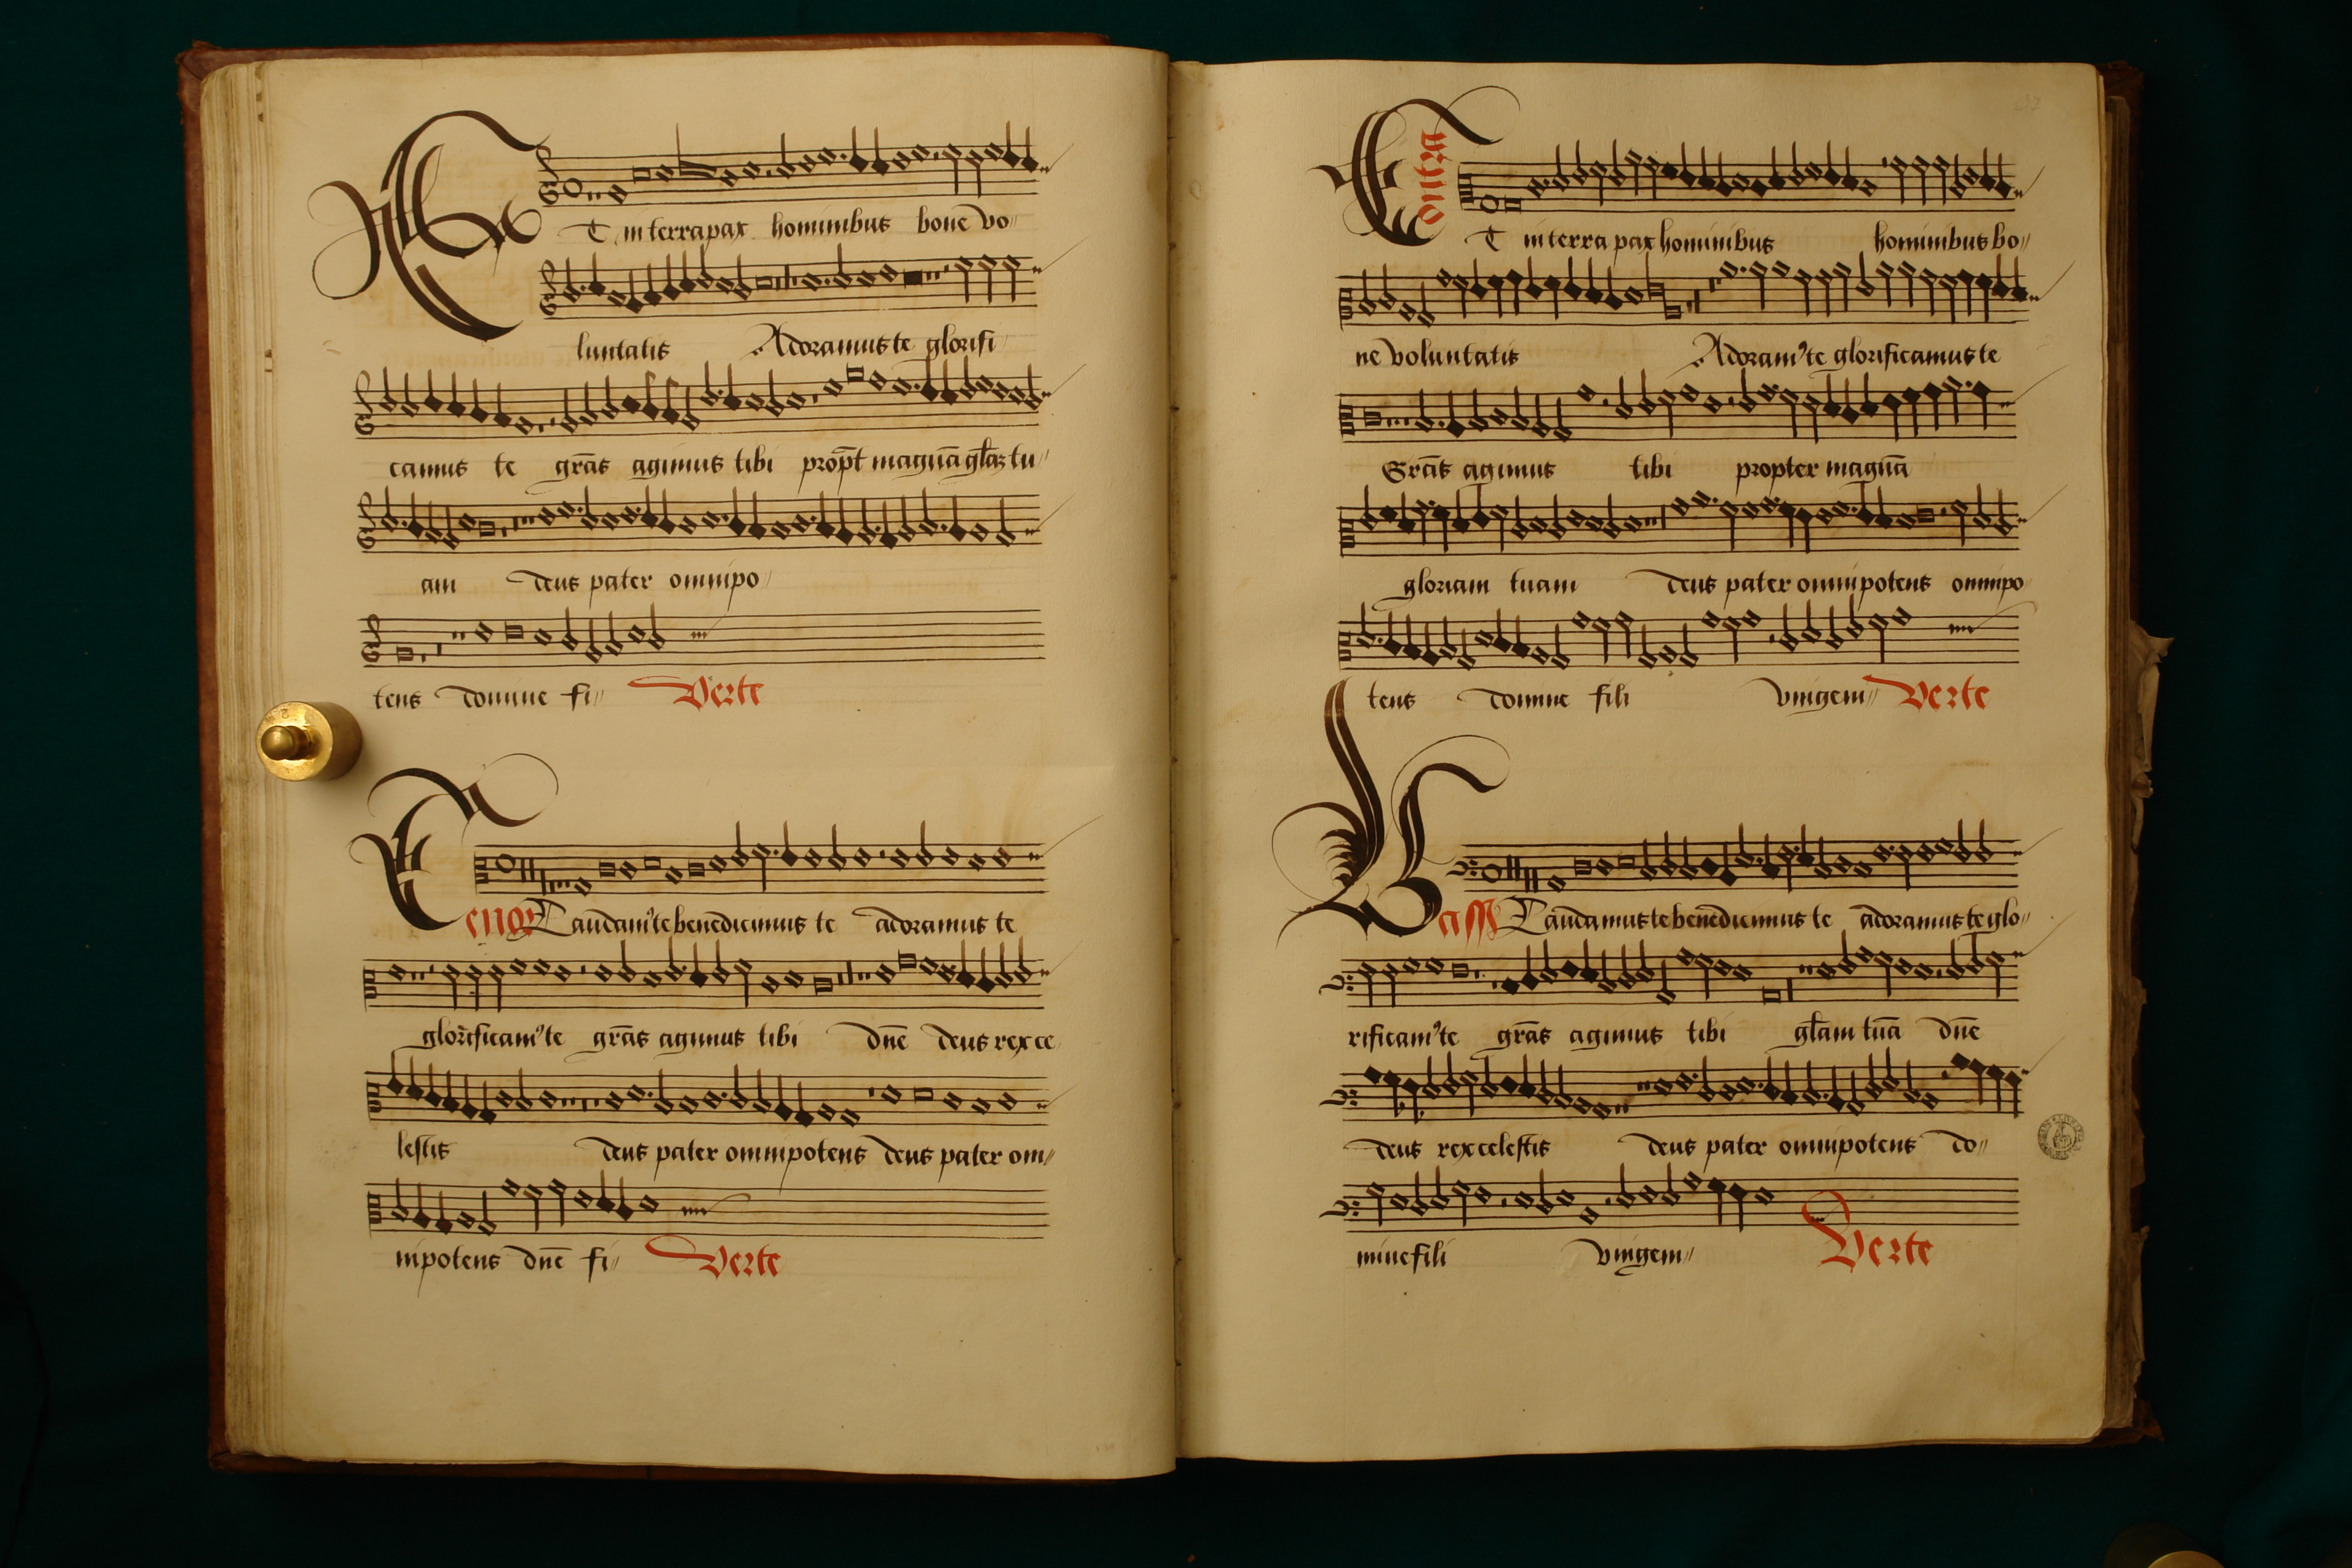 Et in terra pax hominibus bone vo
luntatis Adoramus te glorifi
camus te gr̄as agimus tibi prop̄t magnā gl̄az tu
am deus pater omnipo
tens domine fi Verte
Tenor Laudam⁹ te benedicimus te adoramus te
glorificam⁹ te gr̄as agimus tibi dn̄e deus rex ce
lestis deus pater omnipotens deus pater om
nipotens dn̄e fi Verte
Contra
Et in terra pax hominibus hominibus bo
ne voluntatis Adoram⁹ te glorificamus te
Gr̄as agimus tibi propter magnā
gloriam tuam deus pater omnipotens omnipo
tens domine fili vnigeni Verte
Bass Laudamus te benedicimus te adoramus te glo
rificam⁹ te gr̄as agimus tibi gl̄am tuā dn̄e
deus rex celestis deus pater omnipotens do
mine fili vnigeni Verte